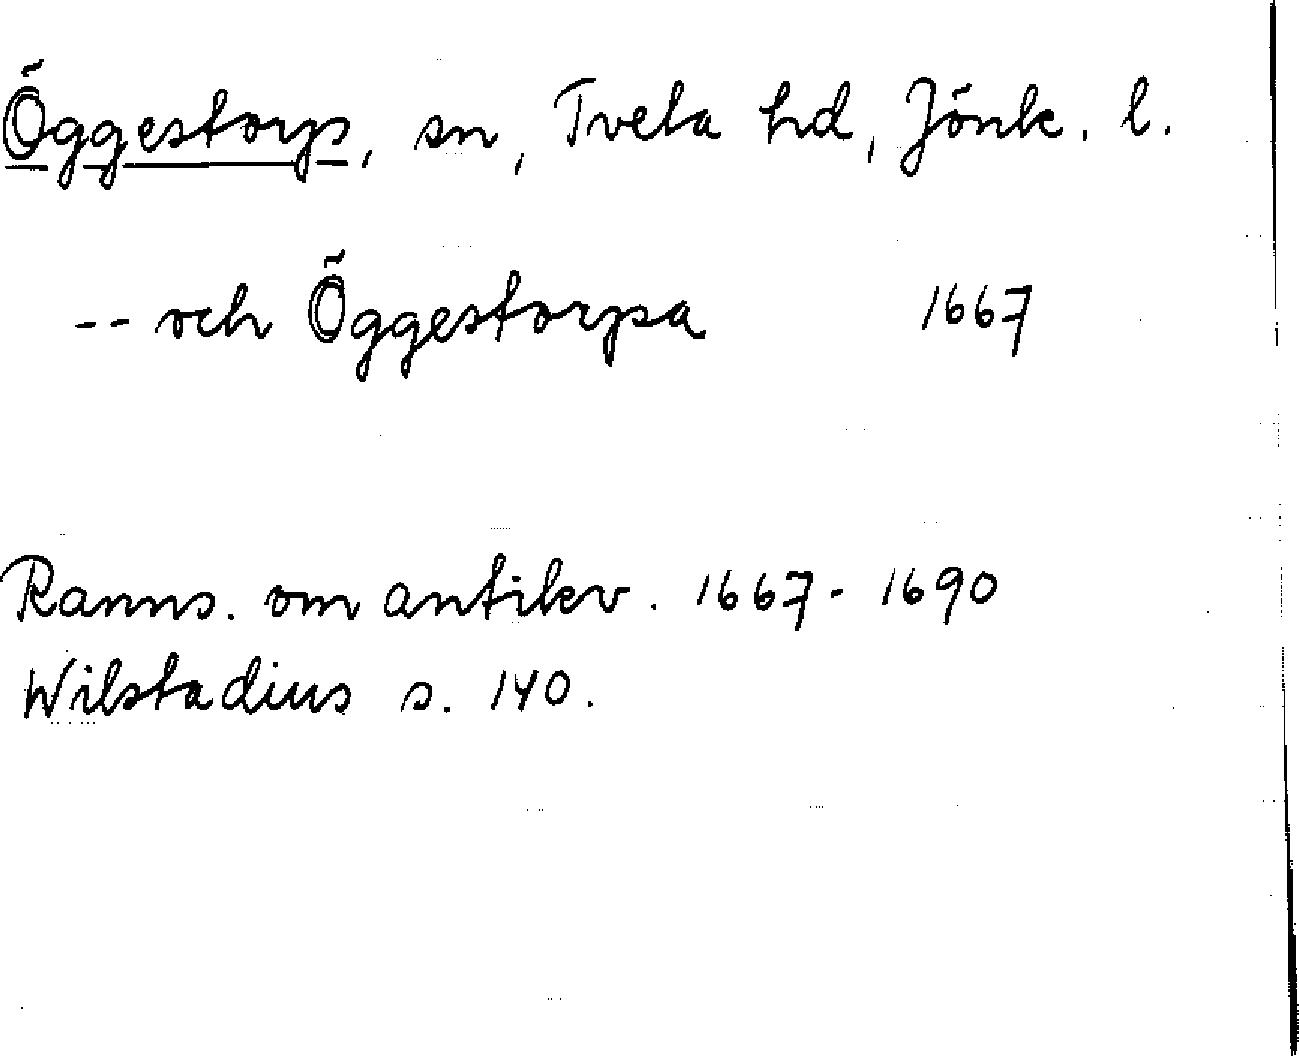 Öggestorp, sn, Tveta hd, Jönk. l.
-- och Öggestorpa 1667
Ranns. om antikv. 1667-1690
Wilstadius s. 140.